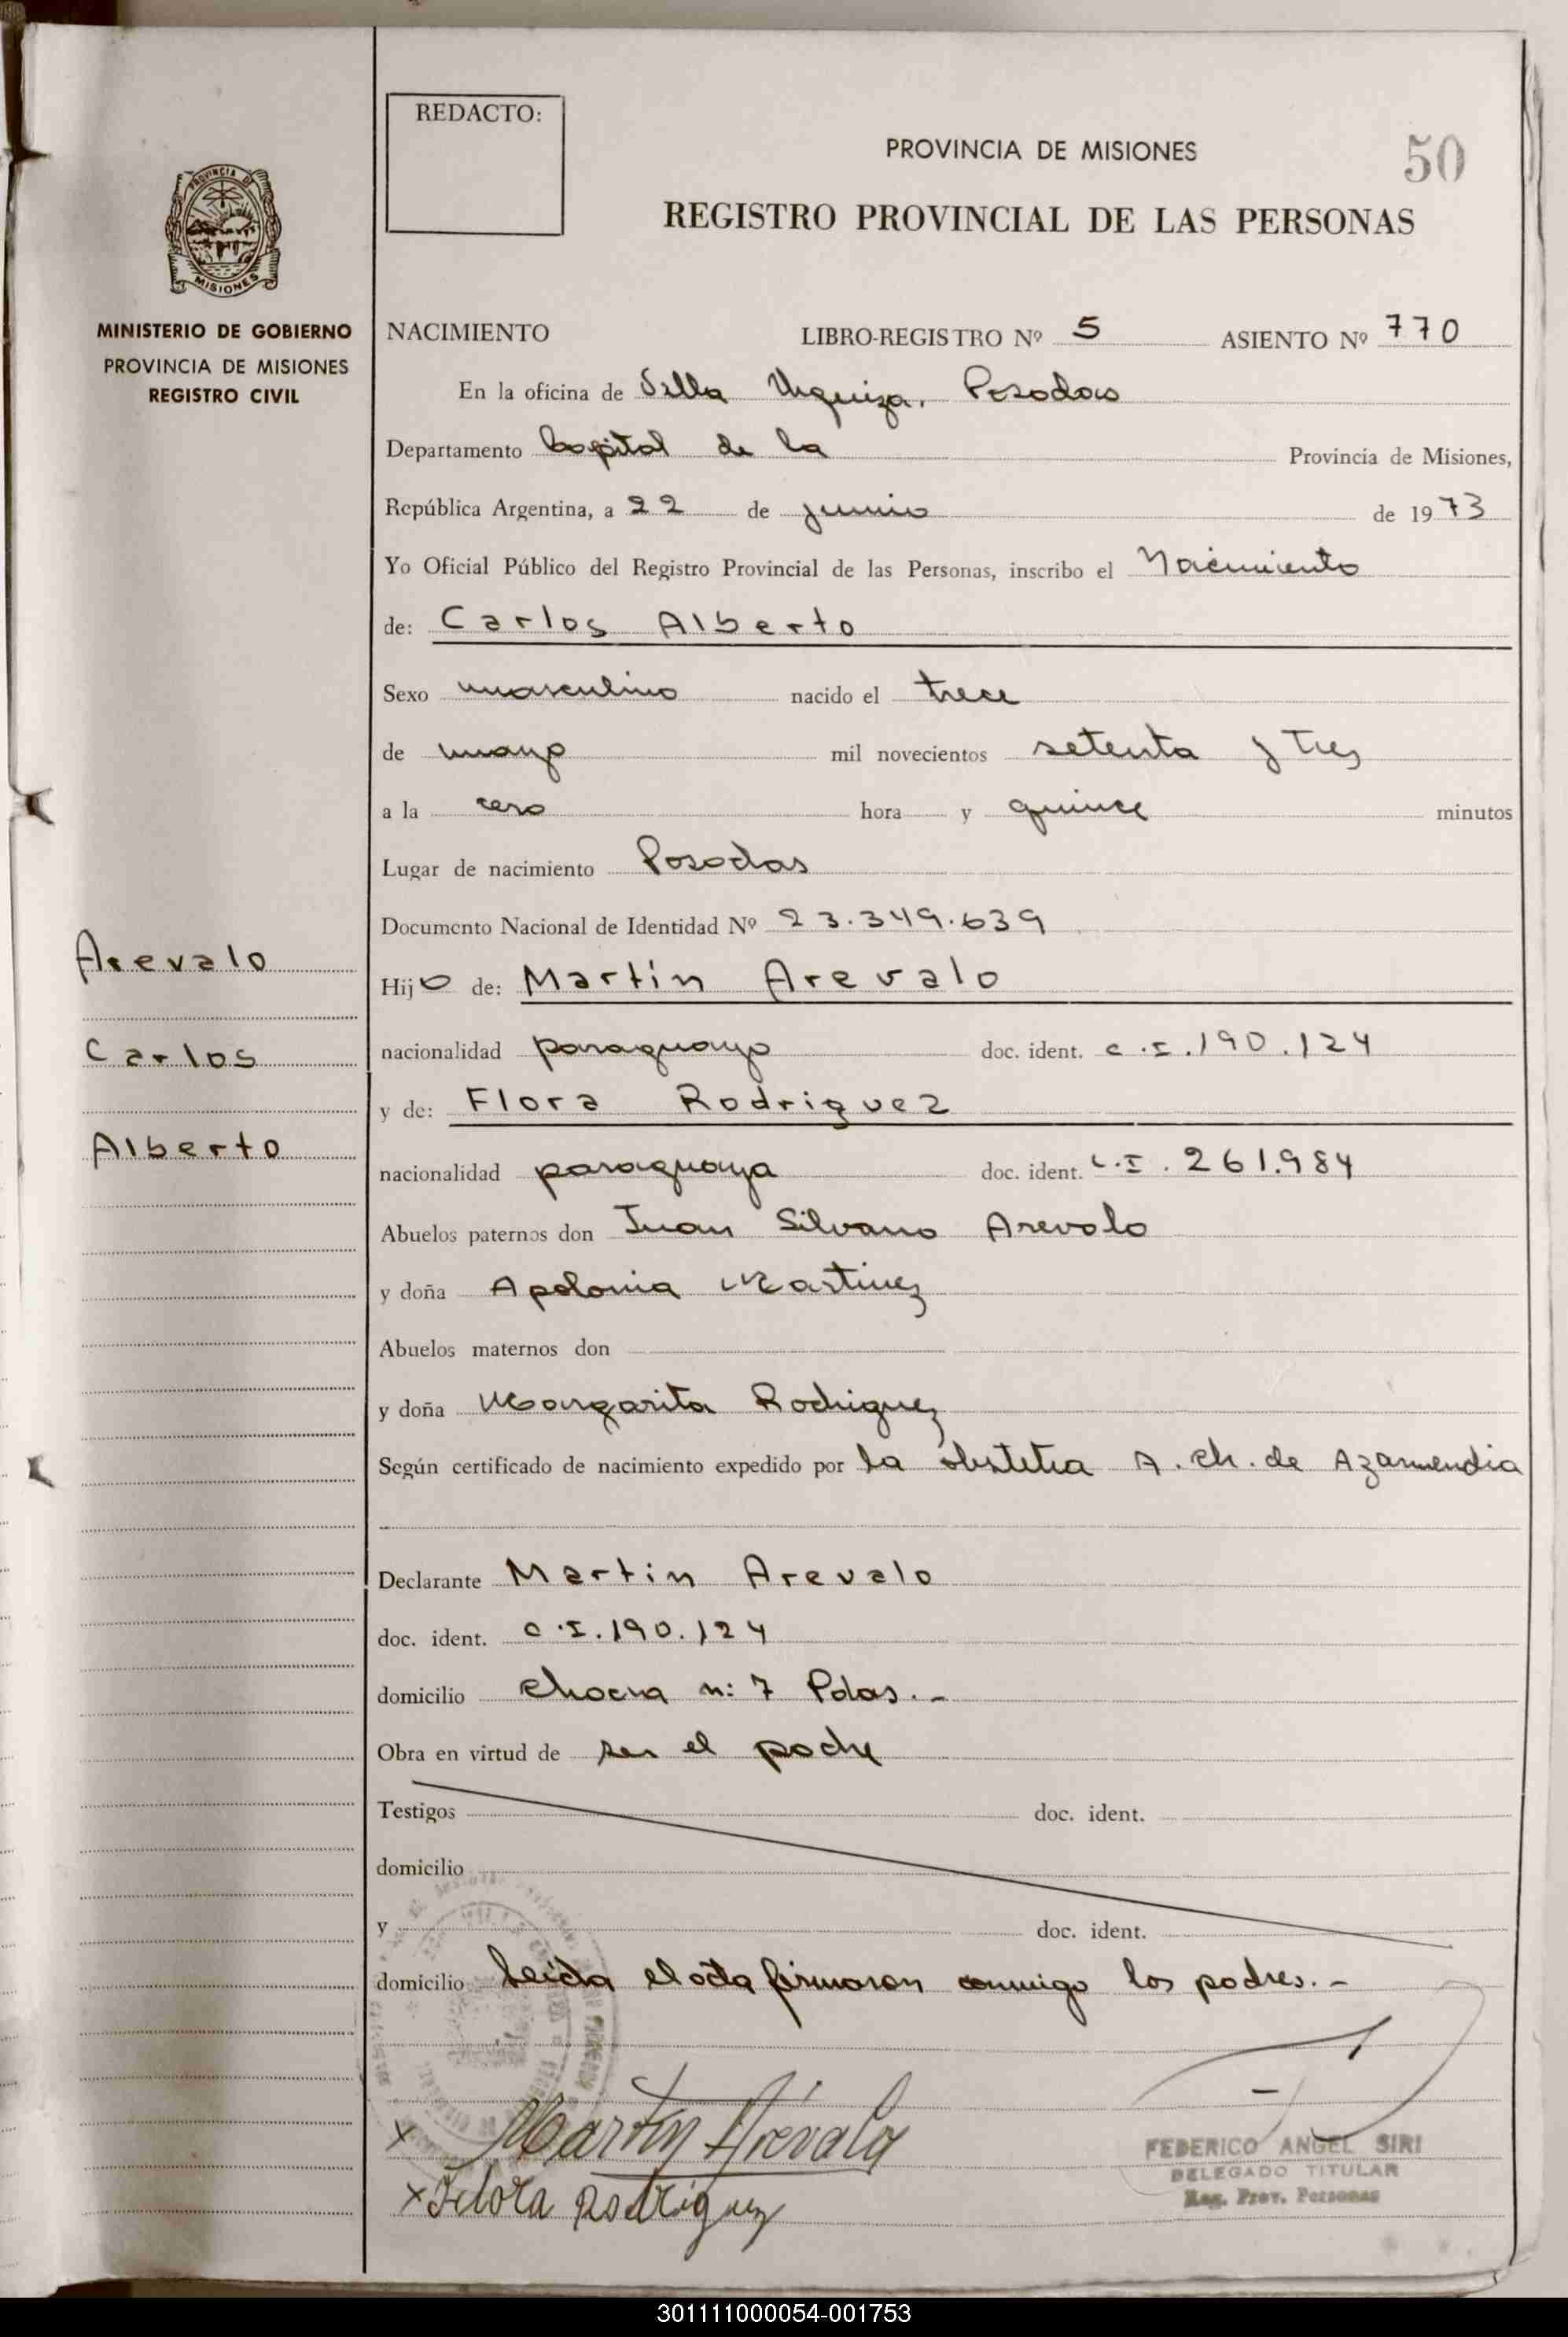 REDACTO:
PROVINCIA DE MISIONES
50
REGISTRO PROVINCIAL DE LAS PERSONAS
PROVINCIA DE
MISIONES
MINISTERIO DE GOBIERNO
PROVINCIA DE MISIONES
REGISTRO CIVIL
NACIMIENTO LIBRO-REGISTRO Nº 5 ASIENTO Nº 770
En la oficina de Villa Urquiza, Posadas
Departamento Capital de la Provincia de Misiones,
República Argentina, a 22 de junio de 1973
Yo Oficial Público del Registro Provincial de las Personas, inscribo el Nacimiento
de: Carlos Alberto
Sexo masculino nacido el trece
de mayo mil novecientos setenta y tres
a la cero hora y quince minutos
Lugar de nacimiento Posadas
Documento Nacional de Identidad Nº 23.349.639
Arevalo
Hijo de: Martín Arevalo
Carlos
nacionalidad paraguayo doc. ident. c.I.190.124
y de: Flora Rodriguez
Alberto
nacionalidad paraguaya doc. ident. c.I. 261.984
Abuelos paternos don Juan Silvano Arevalo
y doña Apolonia Martinez
Abuelos maternos don
y doña Margarita Rodriguez
Según certificado de nacimiento expedido por la A. Ch. de Azarmendia
Declarante Martin Arevalo
doc. ident. c.I.190.124
domicilio Chacra n: 7 Pdas.-
Obra en virtud de ser el padre
Testigos doc. ident.
domicilio
y doc. ident.
domicilio Leida el acta firmaron conmigo los padres.-
x Martin Arévalo
FEDERICO ANGEL SIRI
DELEGADO TITULAR
Reg. Prov. Personas
x Flora Rodriguez
301111000054-001753